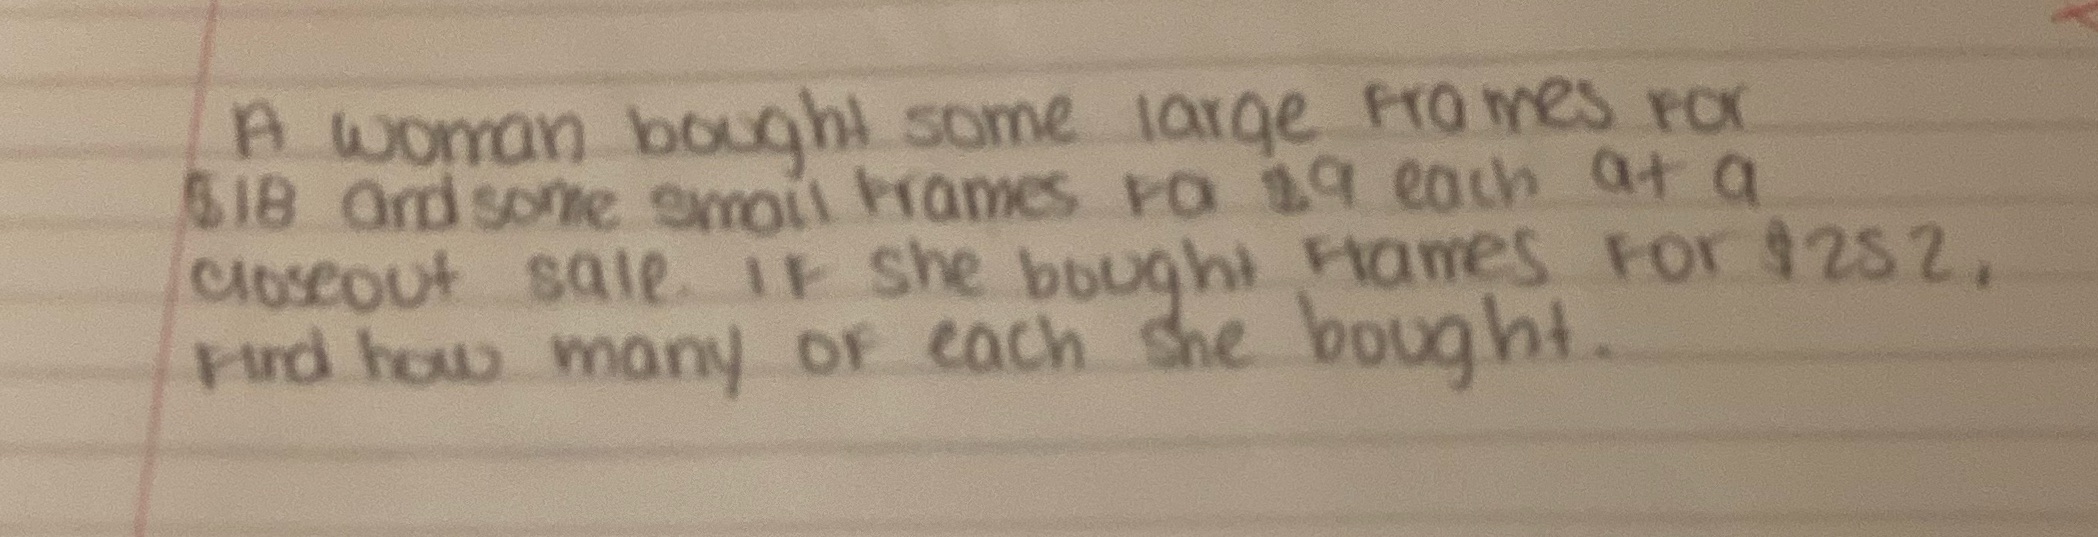 A woman bought some large Frames For
$18 and some small Frames Fo $9 each at a
closeout sale. IF she bought Frames For $252,
Find how many oF each she bought.